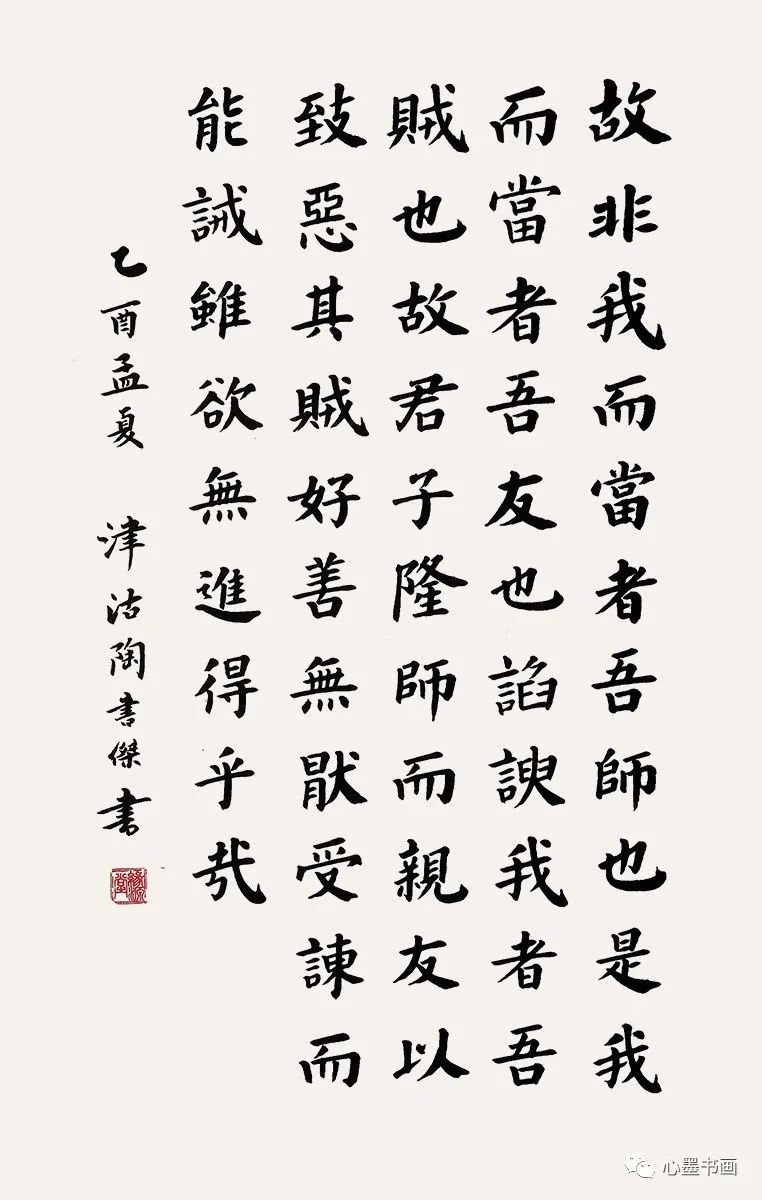 故非我而當者吾師也是我
而當者吾友也諂諛我者吾
賊也故君子隆師而親友以
致惡其賊好善無猒受諫而
能誡雖欲無進得乎㢤
乙酉孟夏 津沽陶書傑书
心墨书画